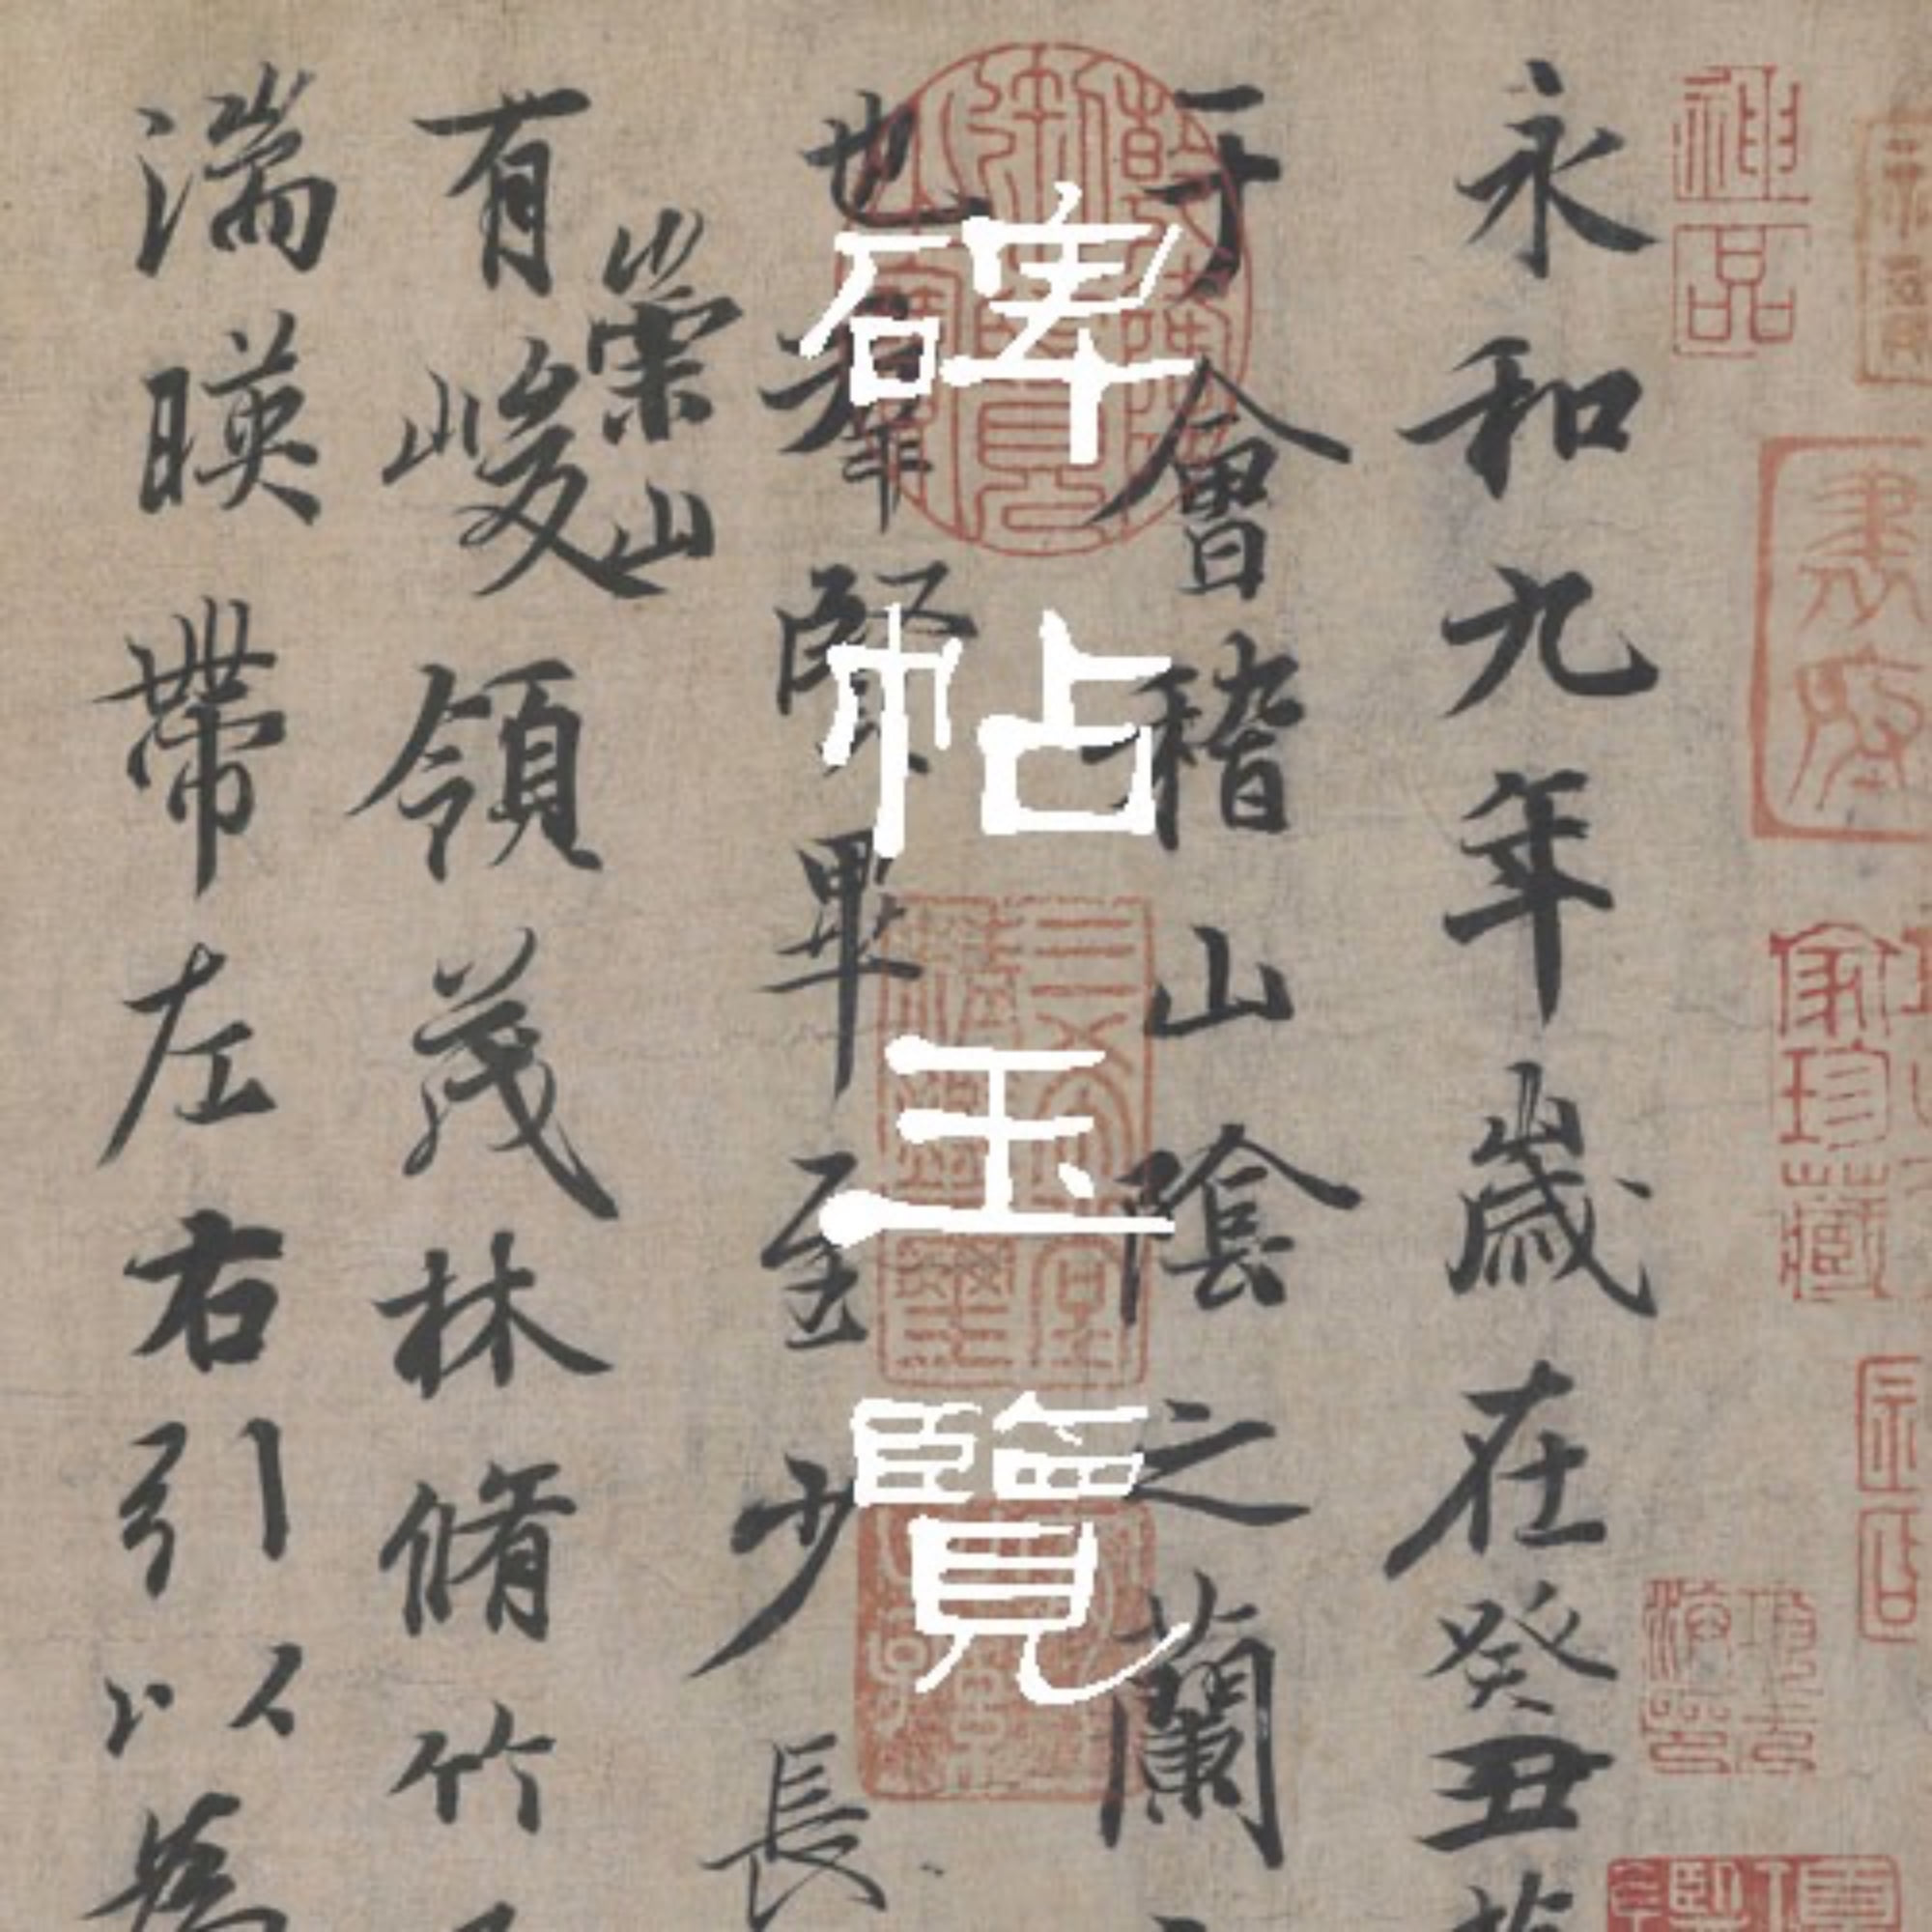 永和九年歲在癸丑
于會稽山陰之蘭
也羣賢畢至少長
有崇山峻領茂林脩竹
湍暎帶左右引以為
碑帖玉覽
神品